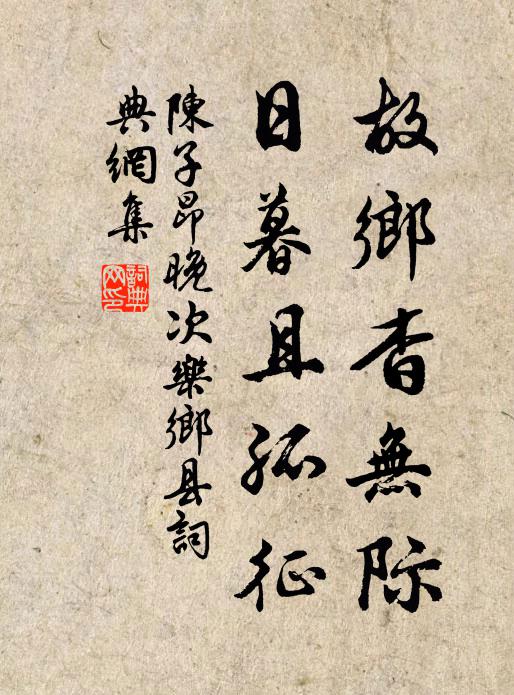 故鄉杳無际
日暮且孤征
陳子昂晚次樂鄉县詞
典網集
詞典
网印